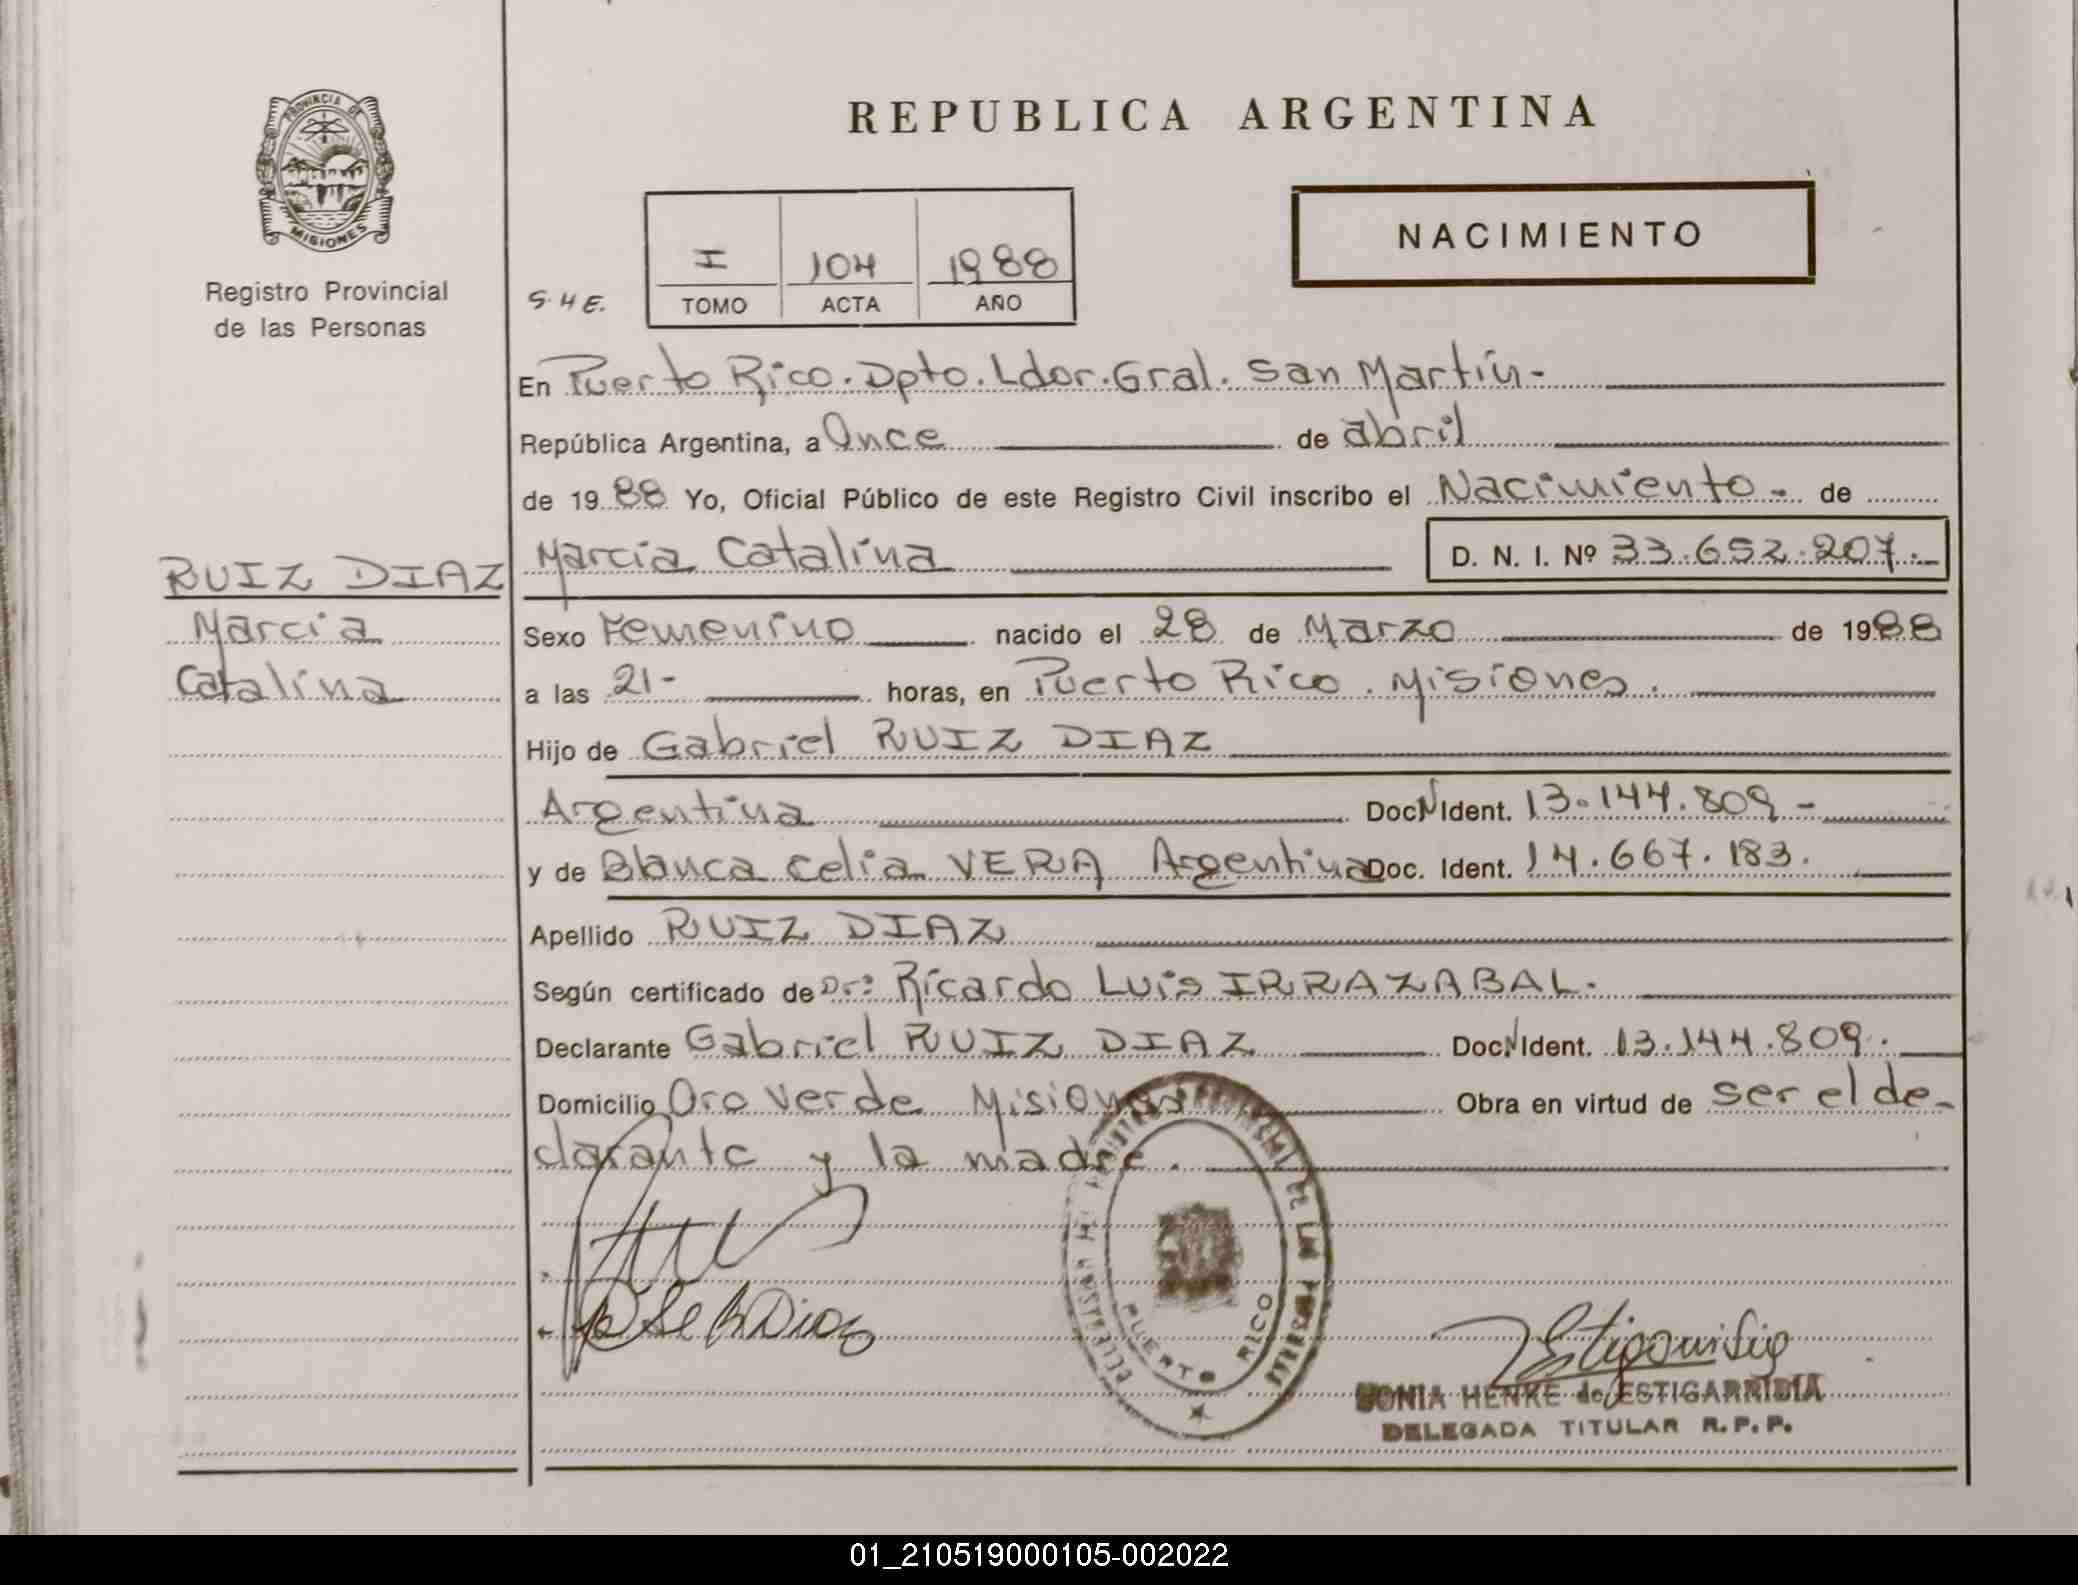 PROVINCIA DE
MISIONES
Registro Provincial
de las Personas
REPUBLICA ARGENTINA
NACIMIENTO
S.H.E.
I 104 1988
TOMO ACTA AÑO
En Puerto Rico. Dpto. Ldor. Gral. San Martín-
República Argentina, a Once de abril
de 1988 Yo, Oficial Público de este Registro Civil inscribo el Nacimiento- de
RUIZ DIAZ
Marcia
Catalina
Marcia Catalina D. N. I. Nº 33.652.207.-
Sexo Femenino nacido el 28 de Marzo de 1988
a las 21- horas, en Puerto Rico. Misiones.
Hijo de Gabriel RUIZ DIAZ
Argentina Doc. N Ident. 13.144.809-
y de Blanca Celia VERA Argentina Doc. Ident. 14.667.183.
Apellido RUIZ DIAZ
Según certificado de Dr: Ricardo Luis IRRAZABAL.
Declarante Gabriel RUIZ DIAZ Doc. N Ident. 13.144.809.
Domicilio Oro Verde Misiones Obra en virtud de ser el de-
clarante y la madre.
PUERTO RICO
SONIA HENKE de ESTIGARRIBIA
DELEGADA TITULAR R.P.P.
01_210519000105-002022